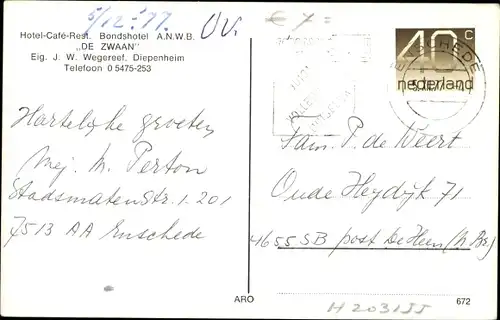 5/12-'77.
UV.
€ 7 =
Hotel-Café-Rest. Bondshotel A.N.W.B.
„DE ZWAAN"
Eig. J. W. Wegereef, Diepenheim
Telefoon 0 5475-253
40 c
nederland
ENSCHEDE
Hartelijke groeten
Mej. M. Perton
Stadsmatenstr. 1.201
7513 AA Enschede
Fam. P. de Weert
Oude Heydijk 71
4655 SB post De Heen (N Br.)
ARO
672
H 203155